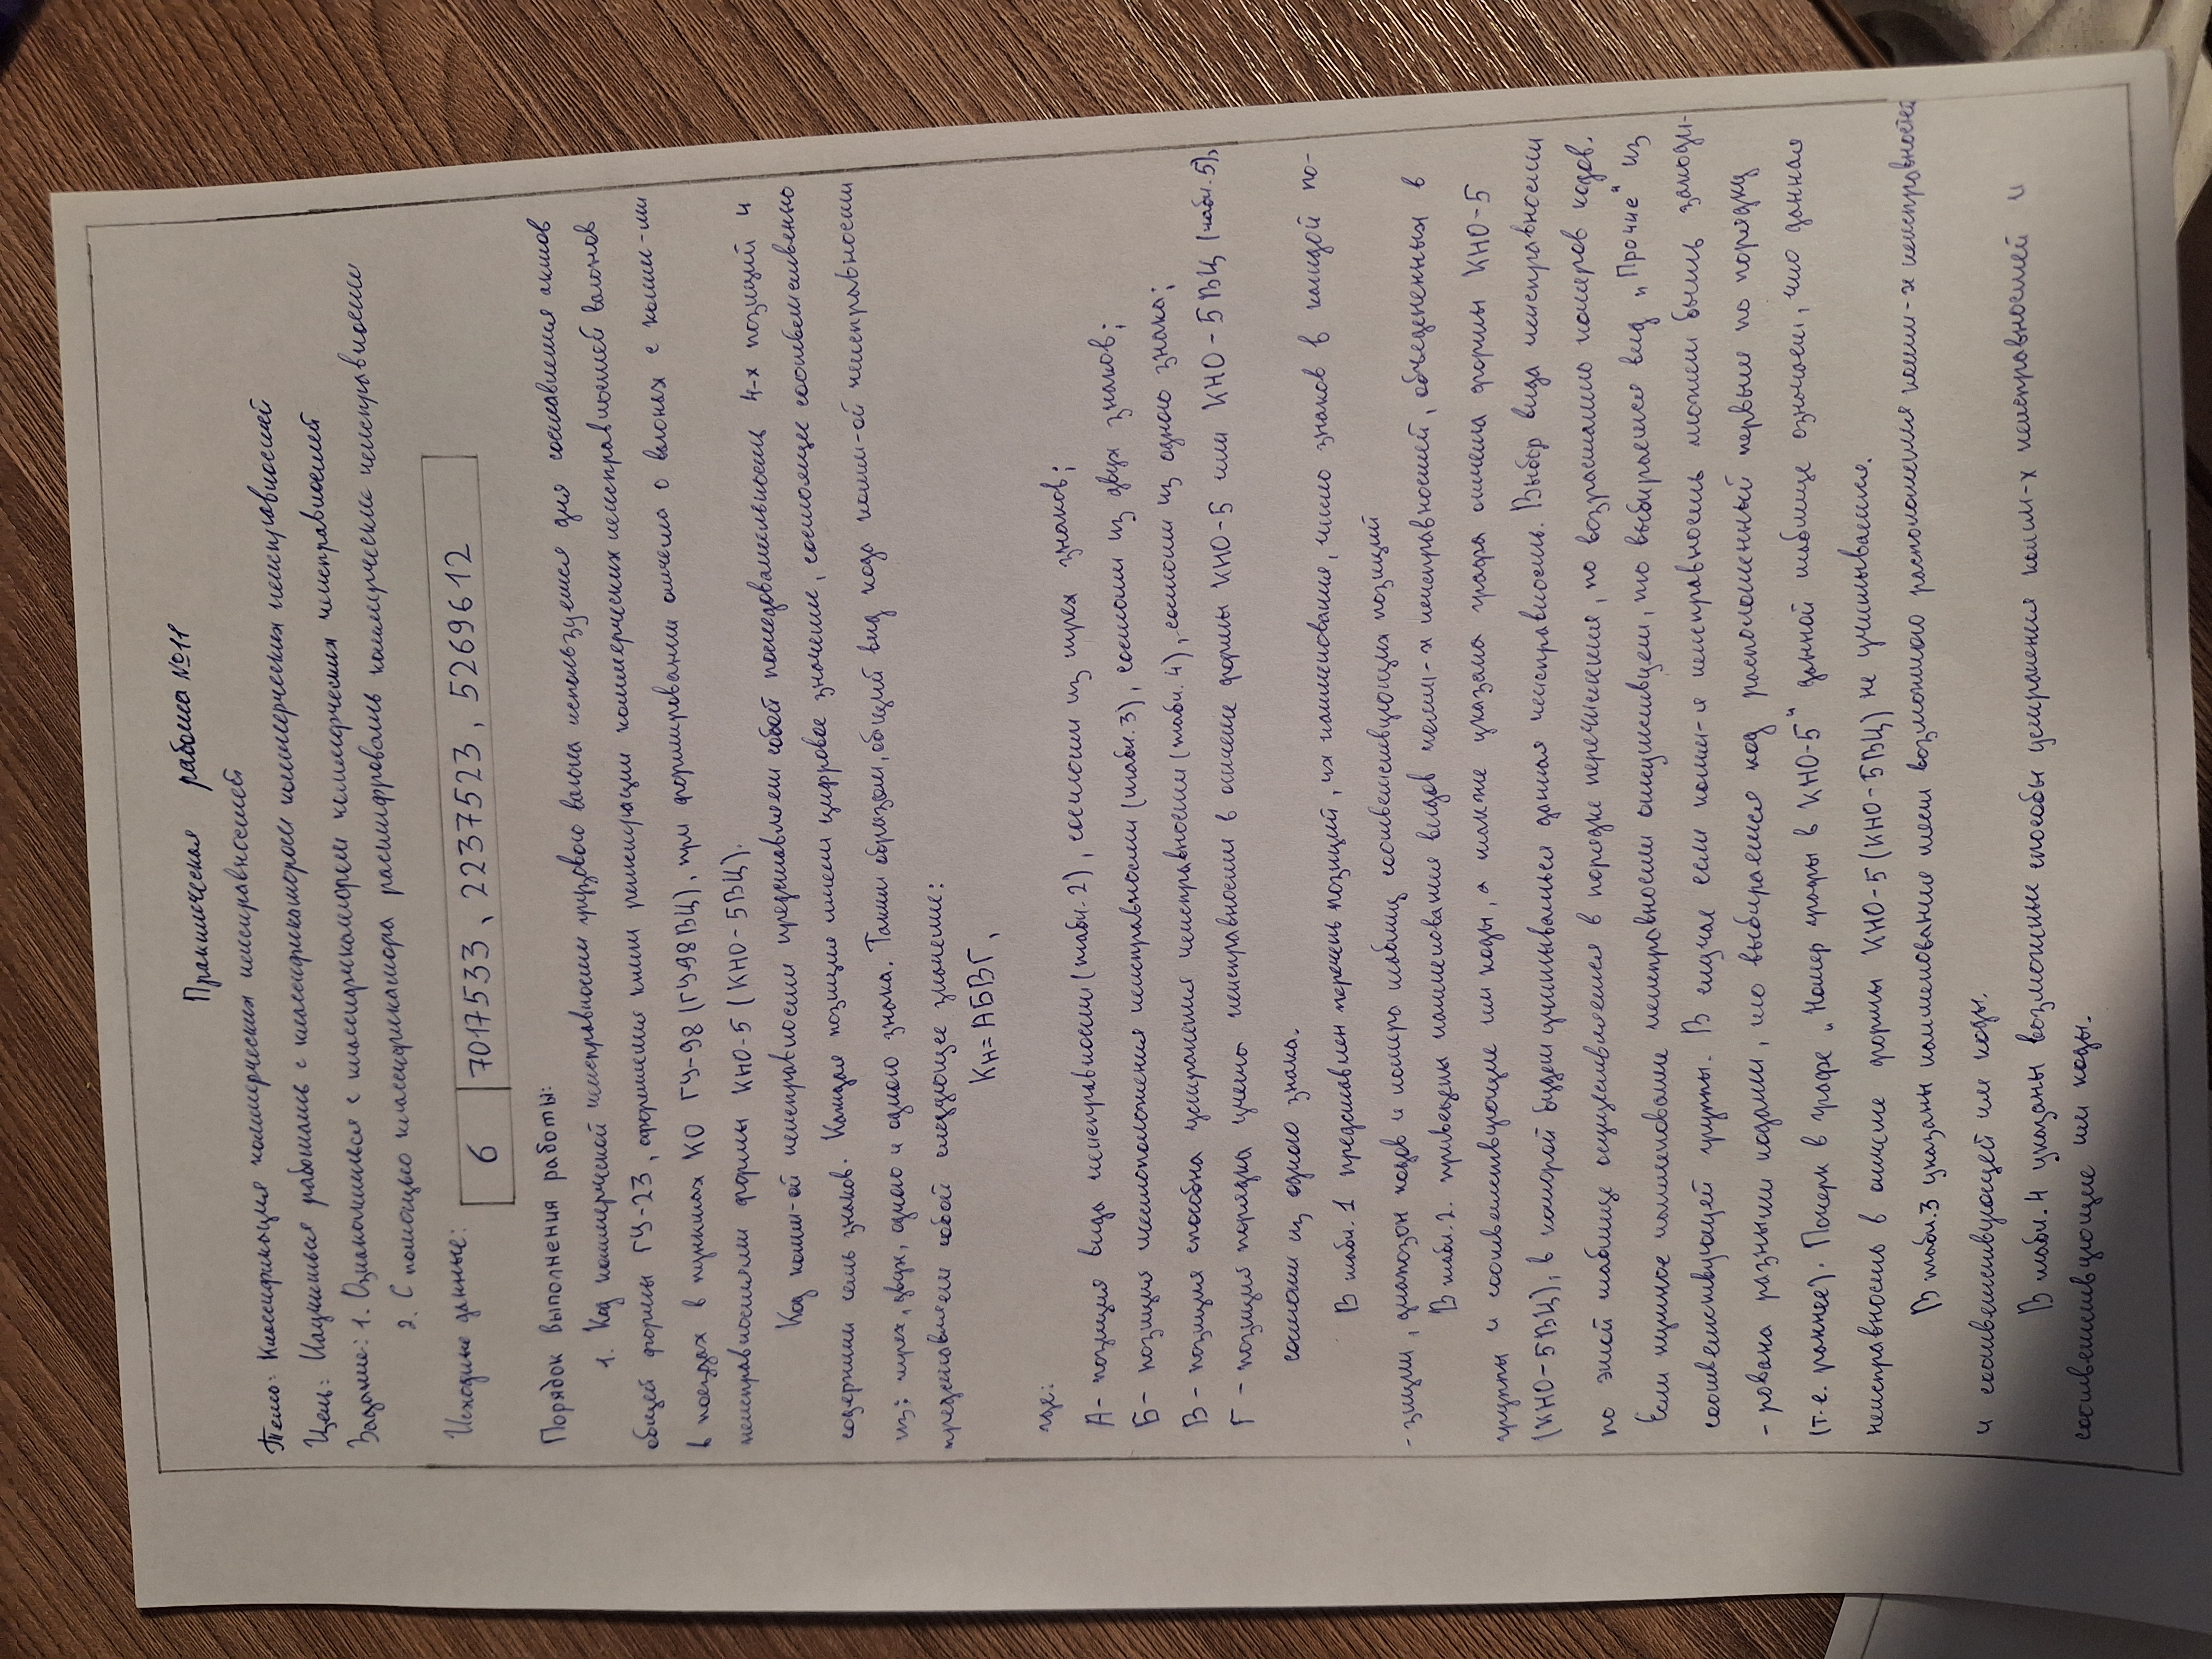 Практическая работа №11
Тема: Классификация коммерческих неисправностей
Цель: Научиться работать с классификатором коммерческих неисправностей
Задание: 1. Ознакомиться с классификатором коммерческих неисправностей
2. С помощью классификатора расшифровать коммерческие неисправности
Исходные данные:
6 | 7017533, 2237523, 5269612
Порядок выполнения работы:
1. Код коммерческой неисправности грузового вагона используется для составления актов
общей формы ГУ-23, оформления книги регистрации коммерческих неисправностей вагонов
в поездах в пунктах КО ГУ-98 (ГУ-98ВЦ), при формировании отчета о вагонах с комм-ми
неисправностями формы КНО-5 (КНО-5ВЦ).
Код комм-ой неисправности представляет собой последовательность 4-х позиций и
содержит семь знаков. Каждая позиция имеет цифровое значение, состоящее соответственно
из: трех, двух, одного и одного знака. Таким образом, общий вид кода комм-ой неисправности
представляет собой следующее значение:
Кн=АБВГ,
где:
А- позиция вида неисправности (табл. 2), состоит из трех знаков;
Б- позиция местоположения неисправности (табл. 3), состоит из двух знаков;
В - позиция способа устранения неисправности (табл. 4), состоит из одного знака;
Г - позиция порядка учета неисправности в отчете формы КНО-5 или КНО-5ВЦ (табл. 5),
состоит из одного знака.
В табл. 1 представлен перечень позиций, их наименования, число знаков в каждой по-
-зиции, диапазон кодов и номера таблиц соответствующих позиций
В табл. 2. приведены наименования видов комм-х неисправностей, объединенных в
группы и соответствующие им коды, а также указана графа отчета формы КНО-5
(КНО-5ВЦ), в которой будет учитываться данная неисправность. Выбор вида неисправности
по этой таблице осуществляется в порядке перечисления, по возрастанию номеров кодов.
Если нужное наименование неисправности отсутствует, то выбирается вид "Прочие" из
соответствующей группы. В случае если комм-я неисправность может быть закоди-
-рована разными кодами, то выбирается код расположенный первым по порядку
(т.е. раннее). Пометка в графе "Номер графы в КНО-5" данной таблице означает, что данная
неисправность в отчете формы КНО-5 (КНО-5ВЦ) не учитывается.
В табл. 3 указаны наименование мест возможного расположения комм-х неисправностей
и соответствующей им коды.
В табл. 4 указаны возможные способы устранения комм-х неисправностей и
соответствующие им коды.